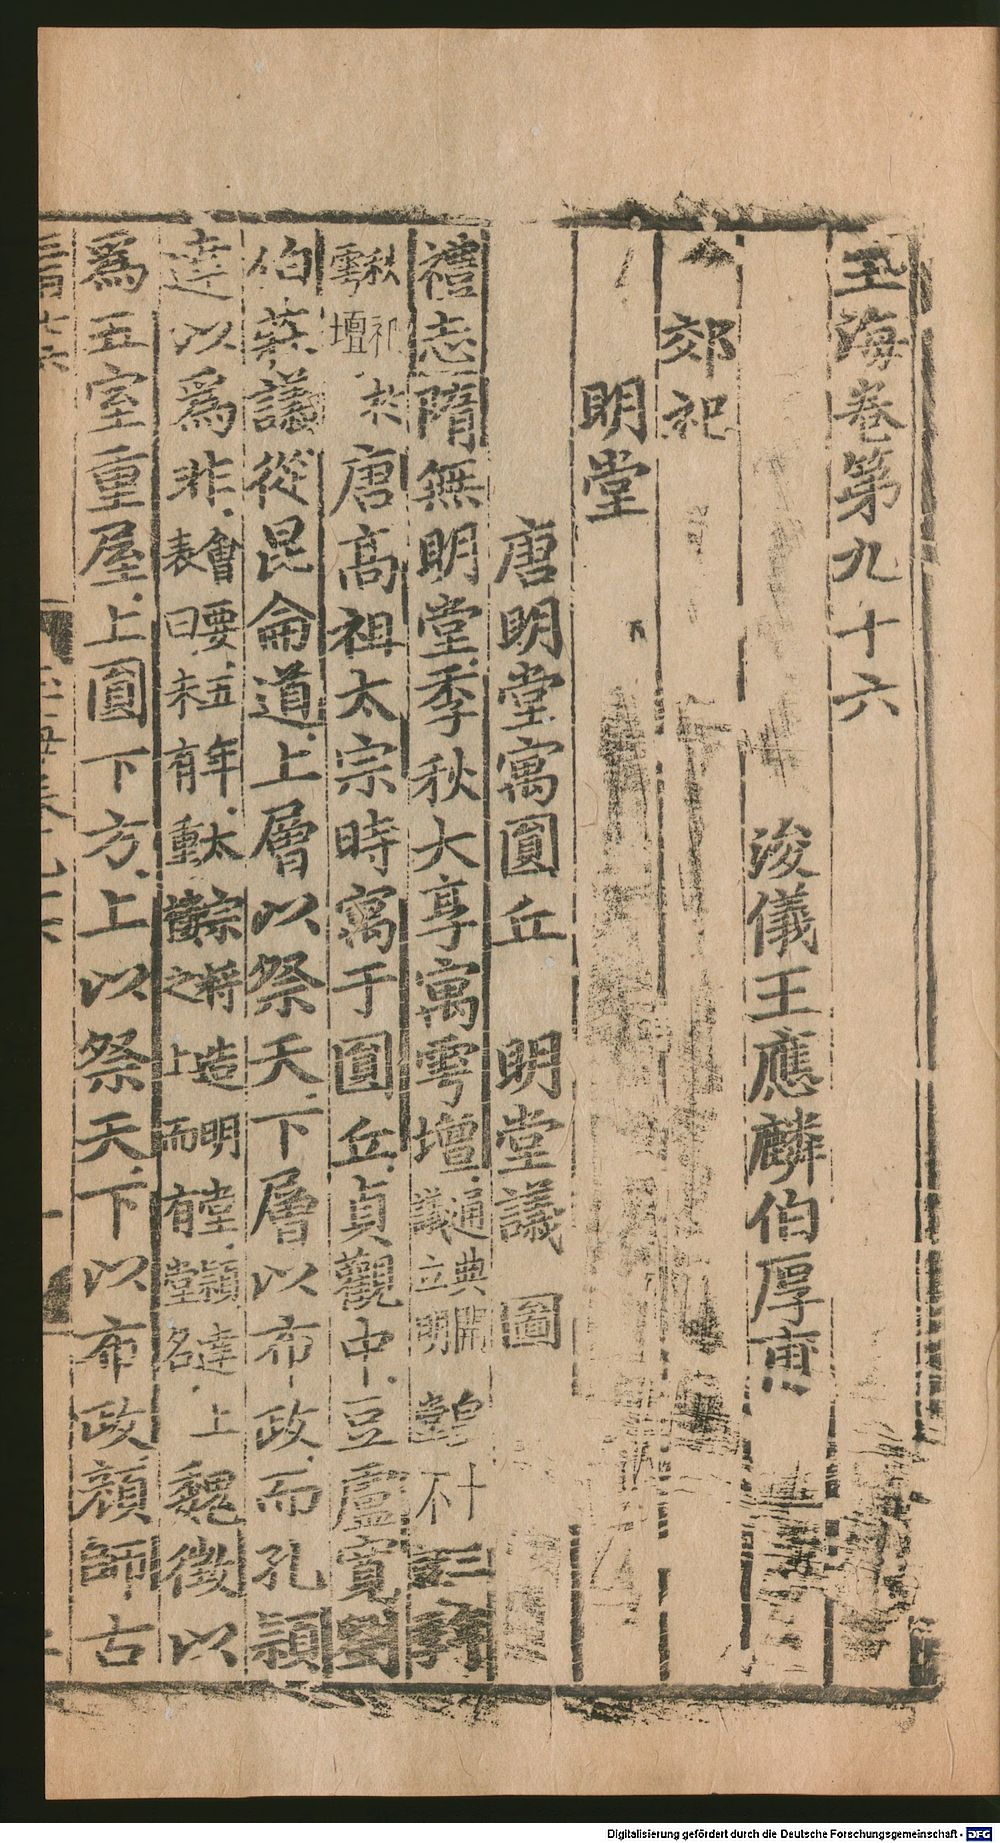 玉海卷第九十六
浚儀王應麟伯厚甫
郊祀
明堂
唐明堂寓圓丘 明堂議 圖
禮志隋無明堂季秋大享寓雩壇通典開十三議立明堂不許
秋祀於雩壇唐高祖太宗時寓于圓丘貞觀中豆盧寬劉
伯莊議從昆侖道上層以祭天下層以布政而孔穎
達以為非會要五年太宗將造明堂穎達上表曰未有重樓之上而有堂名魏徵以
為五室重屋上圓下方上以祭天下以布政顏師古
Digitalisierung gefördert durch die Deutsche Forschungsgemeinschaft - DFG